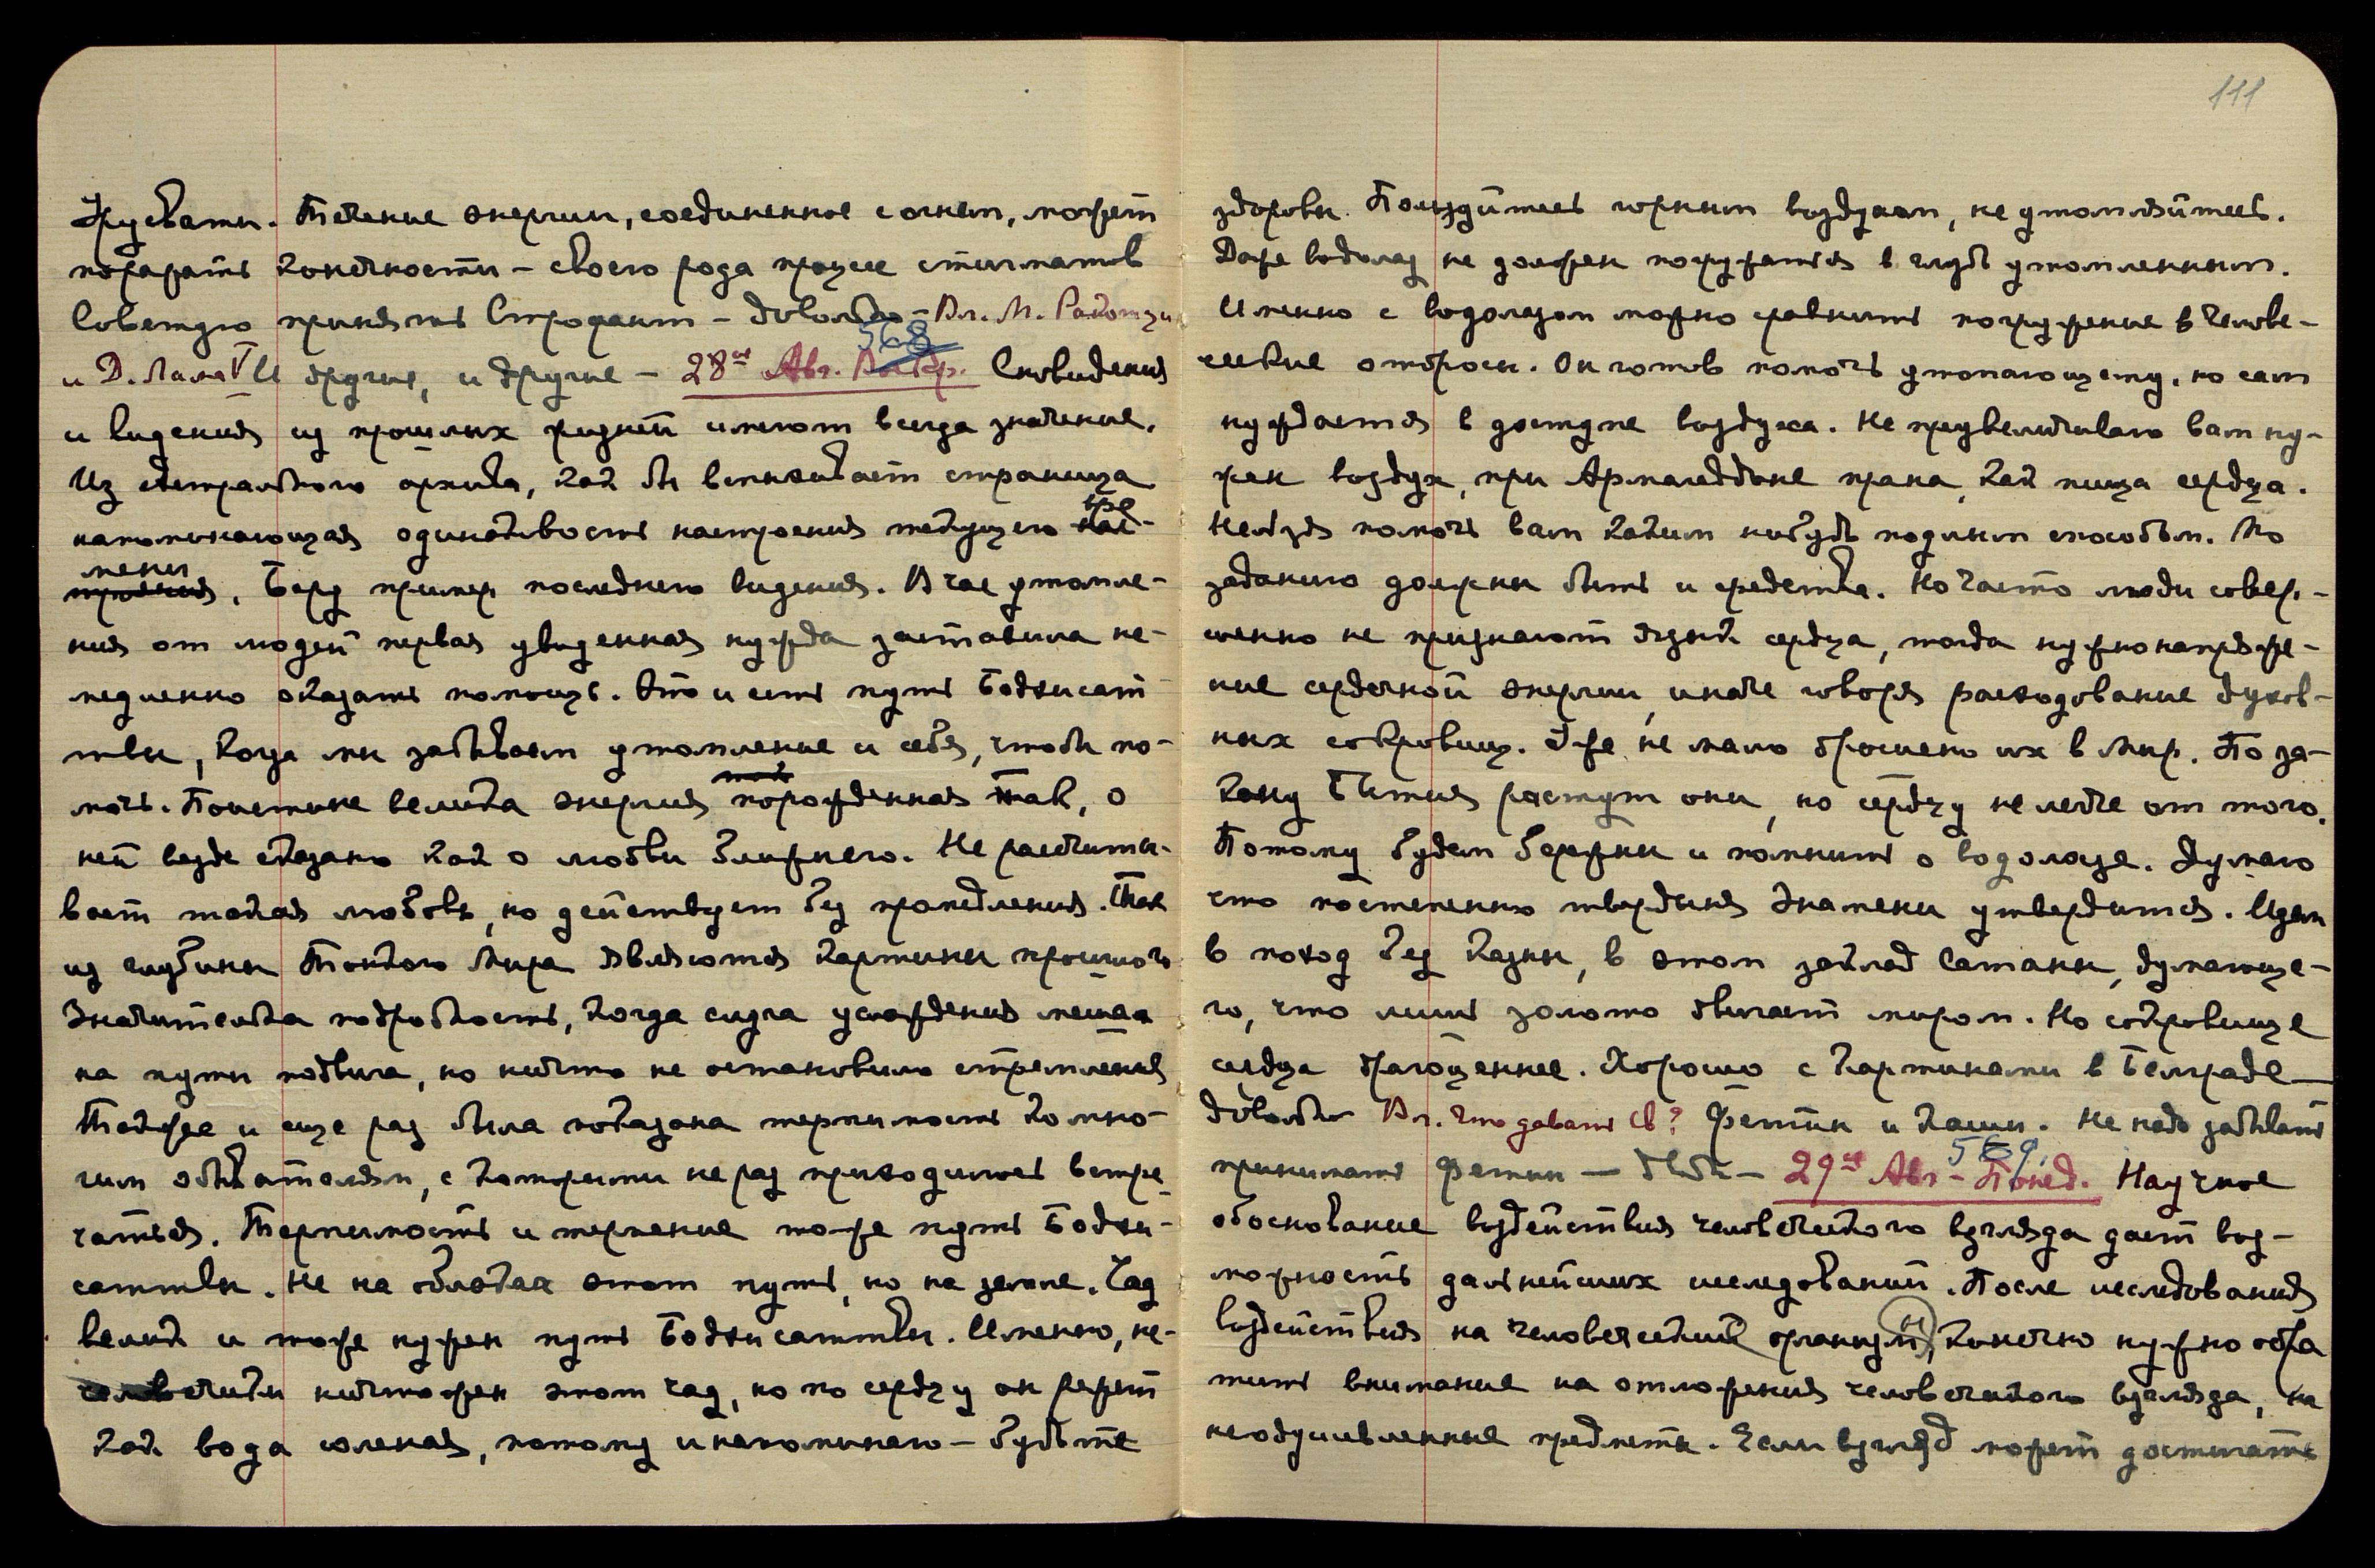 Чувствами. Течение энергии, соединенное с огнем, может
поражать конечности – своего рода процесс стигматов
Советую принять Строфант – довольно – Вл. М. Ракотци
и Д. Лама V И другие, и другие – 28ое Авг. Воскр. 568 Сновидения
и видения из прошлых жизней имеют всегда значение.
Из астрального архива, как бы вспыхивает страница
напоминающая одинаковость настроения текущего вре-
мени. Беру пример последнего видения. В час утомле-
ния от людей первая увиденная нужда заставила не-
медленно оказать помощь. Это и есть путь Бодхисат
твы, когда мы забываем утомление и себя, чтобы по-
мочь. Поистине велика энергия порожденная так, о
ней везде сказано как о любви ближнего. Не рассчиты-
вает такая любовь, но действует без промедления. Так
из глубины Тонкого Мира являются картины прошлого
Значительна подробность, когда сила услаждения мешала
на пути подвига, но ничто не остановило стремления
Также и еще раз была показана терпимость ко мно-
гим обывателям, с которыми не раз приходилось встре-
чаться. Терпимость и терпение тоже путь Бодхи-
саттвы. Не на облаках этот путь, но на земле. Чад
велик и тоже нужен путь Бодхисаттвы. Именно, не-
человечески ничтожен этот чад, но по сердцу он режет
как вода соленая, потому и напоминаю – будьте
111
здоровы. Пользуйтесь горным воздухом, не утомляйтесь.
Даже водолаз не должен погружаться в глубь утомленным.
Именно с водолазом можно сравнить погружение в челове-
ческие отбросы. Он готов помочь утопающему, но сам
нуждается в доступе воздуха. Не преувеличиваю вам ну-
жен воздух, при Армагеддоне прана, как пища сердца.
Нельзя помочь вам каким нибудь подным способом. По
заданию должны быть и средства. Но часто люди совер-
шенно не признают язык сердца, тогда нужно напряже-
ние сердечной энергии, иначе говоря расходование духов-
ных сокровищ. Уже не мало брошено их в Мир. По за-
кону Бытия растут они, но сердцу не легче от того.
Потому будем бережны и помнить о водолазе. Думаю
что постепенно твердыня Знамени утвердится. Идем
в поход без казны, в этом заклад Сатаны, думающе-
го, что лишь золото двигает миром. Но сокровище
сердца драгоценнее. Хорошо с картинами в Белграде –
довольно Вл. Что давать Св? Фетин и Каши. Не надо забывать
принимать Фетин – 29ое Авг – Понед. 569. Научное
обоснование воздействия человеческого взгляда дает воз-
можность дальнейших исследований. После исследования
воздействия на человеческий организм, конечно нужно обра
тить внимание на отложения человеческого взгляда, на
неодушевленные предметы. Если взгляд может достигать